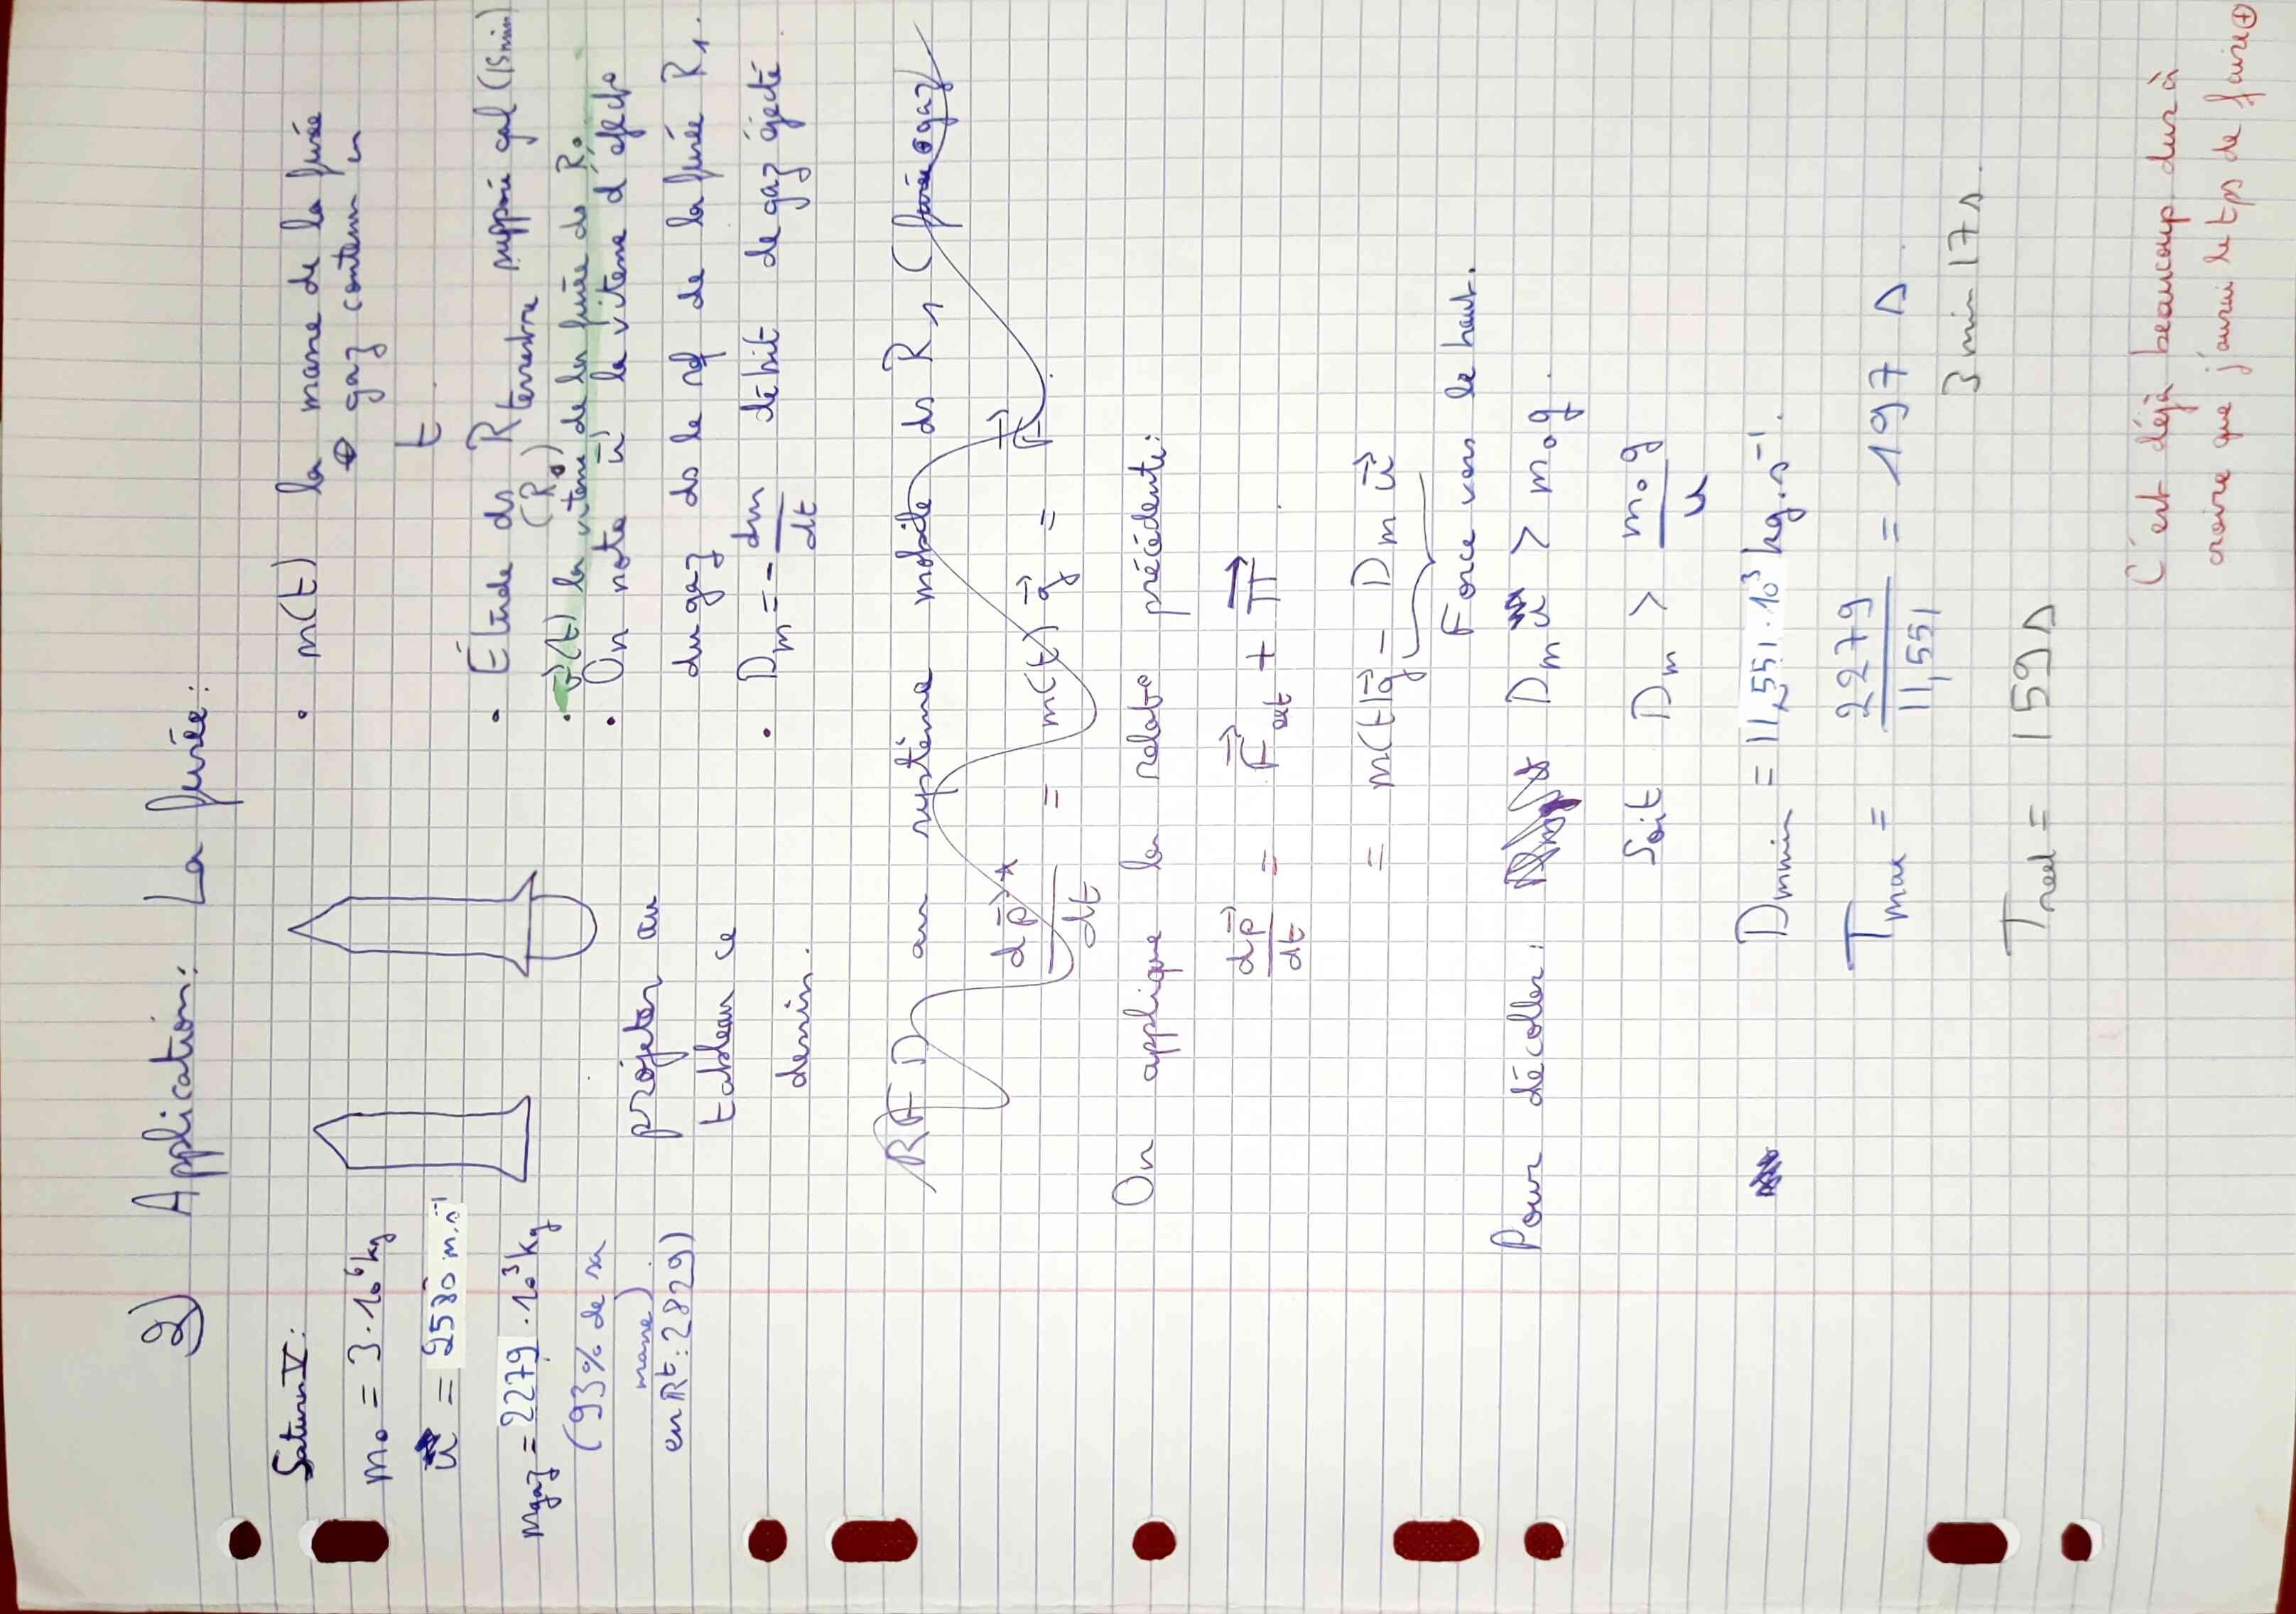 2) Application: La fusée:
Saturn V:
m₀ = 3·10⁶ kg
u = 2580 m.s⁻¹
mgaz = 2279·10³ kg
(93% de sa
masse)
en Rt: 2829)
projeter au
tableau ce
dessin.
• m(t) la masse de la fusée
⊕ gaz contenu
t
• Étude ds R terrestre supposé gal (15min)
(R₀)
• v⃗(t) la vitesse de la fusée ds R₀
• On note u⃗ la vitesse d'
du gaz ds le ref de la fusée R₁.
• Dm = - dm/dt débit de gaz éjecté
RFD au système mobile ds R₁ (fusée ⊕ gaz)
dp⃗*/dt = m(t) g⃗ = F⃗
On applique la relat° précédente:
dp⃗/dt = F⃗ext + Π⃗
= m(t)g⃗ - Dm u⃗
Force vers le haut.
Pour décoller: Dm u > m₀g.
Soit Dm > m₀g/u
Dmmin = 11,551·10³ kg.s⁻¹.
Tmax = 2279/11,551 = 197 s.
3 min 17 s.
Treel = 159 s
C'est déjà beaucoup dur à
croire que j'aurai le tps de faire ⊕